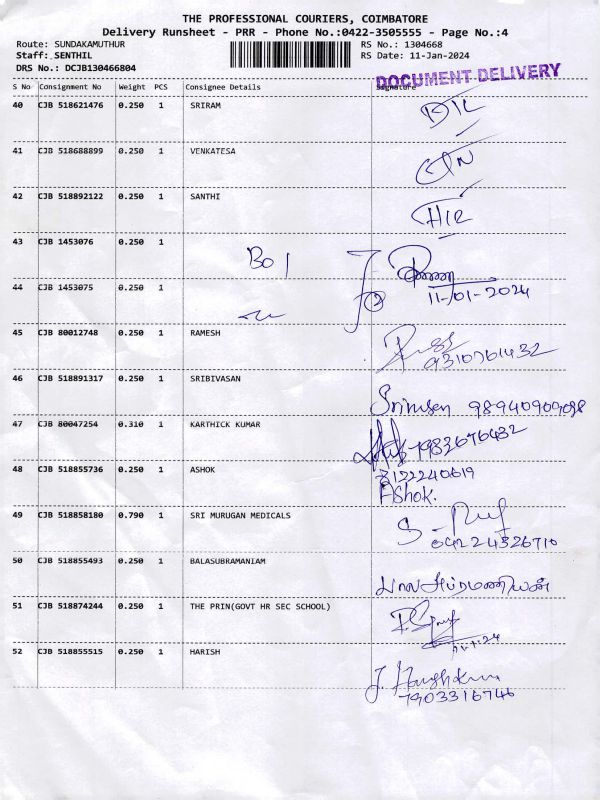 THE PROFESSIONAL COURIERS, COIMBATORE
Delivery Runsheet - PRR - Phone No.:0422-3505555 - Page No.:4
Route: SUNDAKAMUTHUR RS No.: 1304668
Staff: SENTHIL RS Date: 11-Jan-2024
DRS No.: DCJB130466804
DOCUMENT DELIVERY
S No Consignment No Weight PCS Consignee Details Signature
40 CJB 518621476 0.250 1 SRIRAM
41 CJB 518688899 0.250 1 VENKATESA
42 CJB 518892122 0.250 1 SANTHI
43 CJB 1453076 0.250 1
11-01-2024
44 CJB 1453075 0.250 1
45 CJB 80012748 0.250 1 RAMESH
9310761432
46 CJB 518891317 0.250 1 SRIBIVASAN
47 CJB 80047254 0.310 1 KARTHICK KUMAR
7983676432
48 CJB 518855736 0.250 1 ASHOK
8122240619
Ashok.
49 CJB 518858180 0.790 1 SRI MURUGAN MEDICALS
04224326710
50 CJB 518855493 0.250 1 BALASUBRAMANIAM
பாலசுப்ரமணியன்
51 CJB 518874244 0.250 1 THE PRIN(GOVT HR SEC SCHOOL)
52 CJB 518855515 0.250 1 HARISH
7903316746